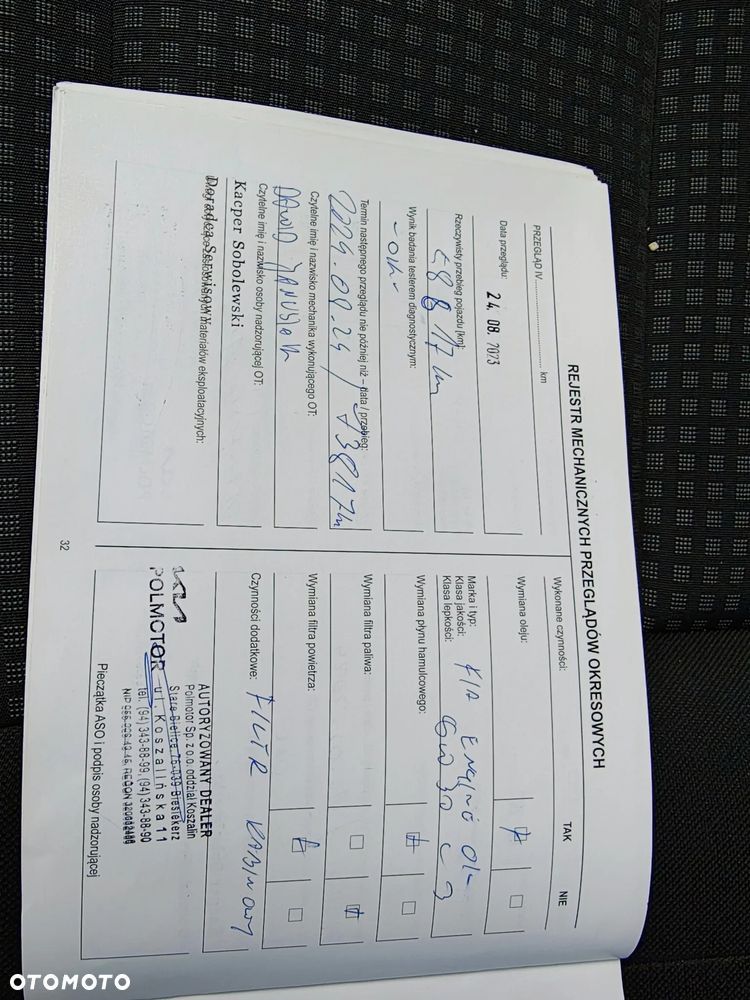 REJESTR MECHANICZNYCH PRZEGLĄDÓW OKRESOWYCH
PRZEGLĄD IV.......................... km
Data przeglądu: 24. 08. 2023
Rzeczywisty przebieg pojazdu [km]:
Wynik badania testerem diagnostycznym:
-ok-
Termin następnego przeglądu nie później niż – data / przebieg:
Czytelne imię i nazwisko mechanika wykonującego OT:
DAWID JANUSIAK
Czytelne imię i nazwisko osoby nadzorującej OT:
Kacper Sobolewski
Doradca Serwisowy
materiałów eksploatacyjnych:
32
Wykonane czynności: TAK NIE
Wymiana oleju:
Marka i typ: KIA
Klasa jakości:
Klasa lepkości: 5W30 C3
Wymiana płynu hamulcowego:
Wymiana filtra paliwa:
Wymiana filtra powietrza:
Czynności dodatkowe: FILTR KABINOWY
AUTORYZOWANY DEALER
Polmotor Sp. z o.o. oddział Koszalin
Stare Bielice, 76-039 Biesiekierz
POLMOTOR ul. Koszalińska 11
tel. (94) 343-88-99, (94) 343-88-90
Pieczątka ASO i podpis osoby nadzorującej
OTOMOTO